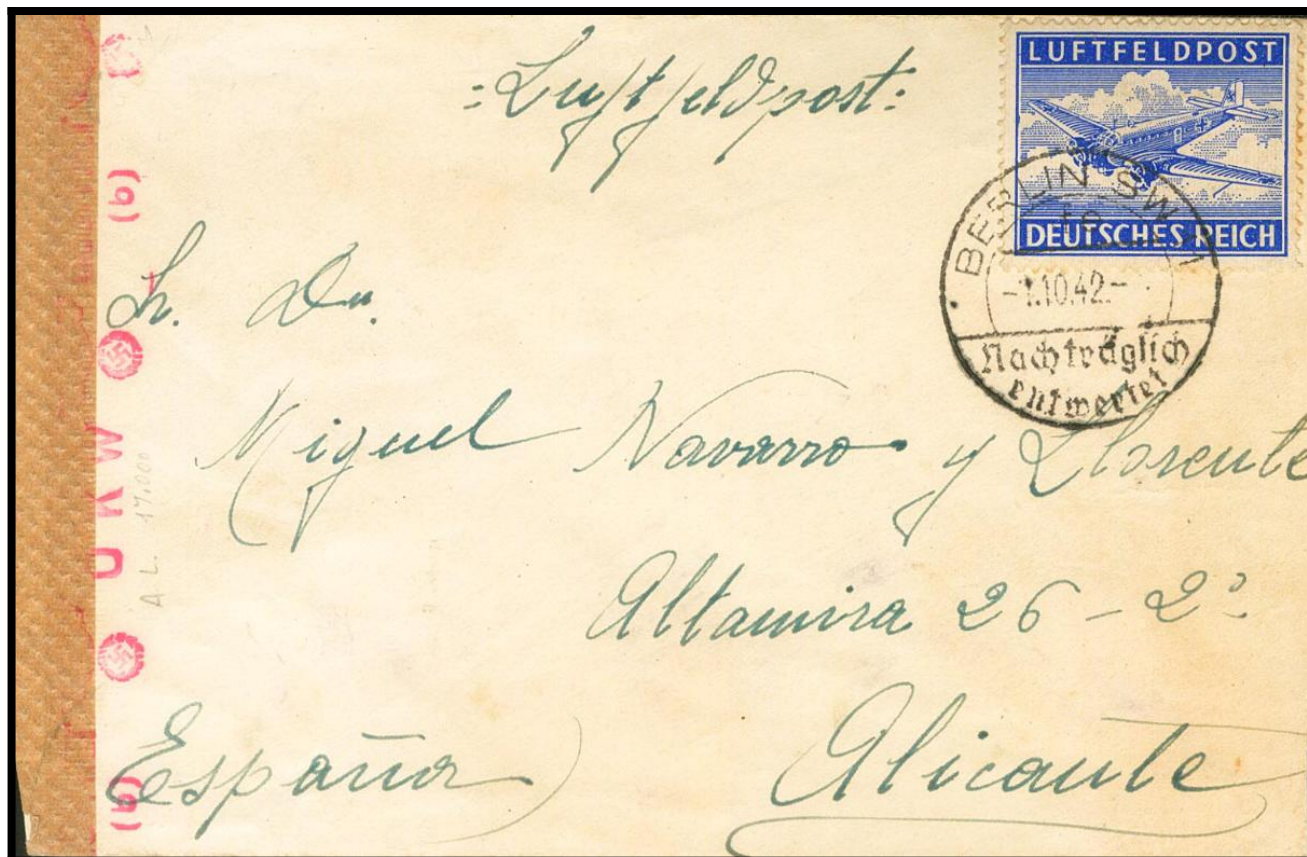 =Luftfeldpost=
LUFTFELDPOST
DEUTSCHES REICH
BERLIN SW 11
-1.10.42.-
Nachträglich
entwertet
Sr. Dn.
Miguel Navarro y Llorente
Altamira 26 - 2º
Alicante
España
(b)
O K W
(b)
A L. 17.000